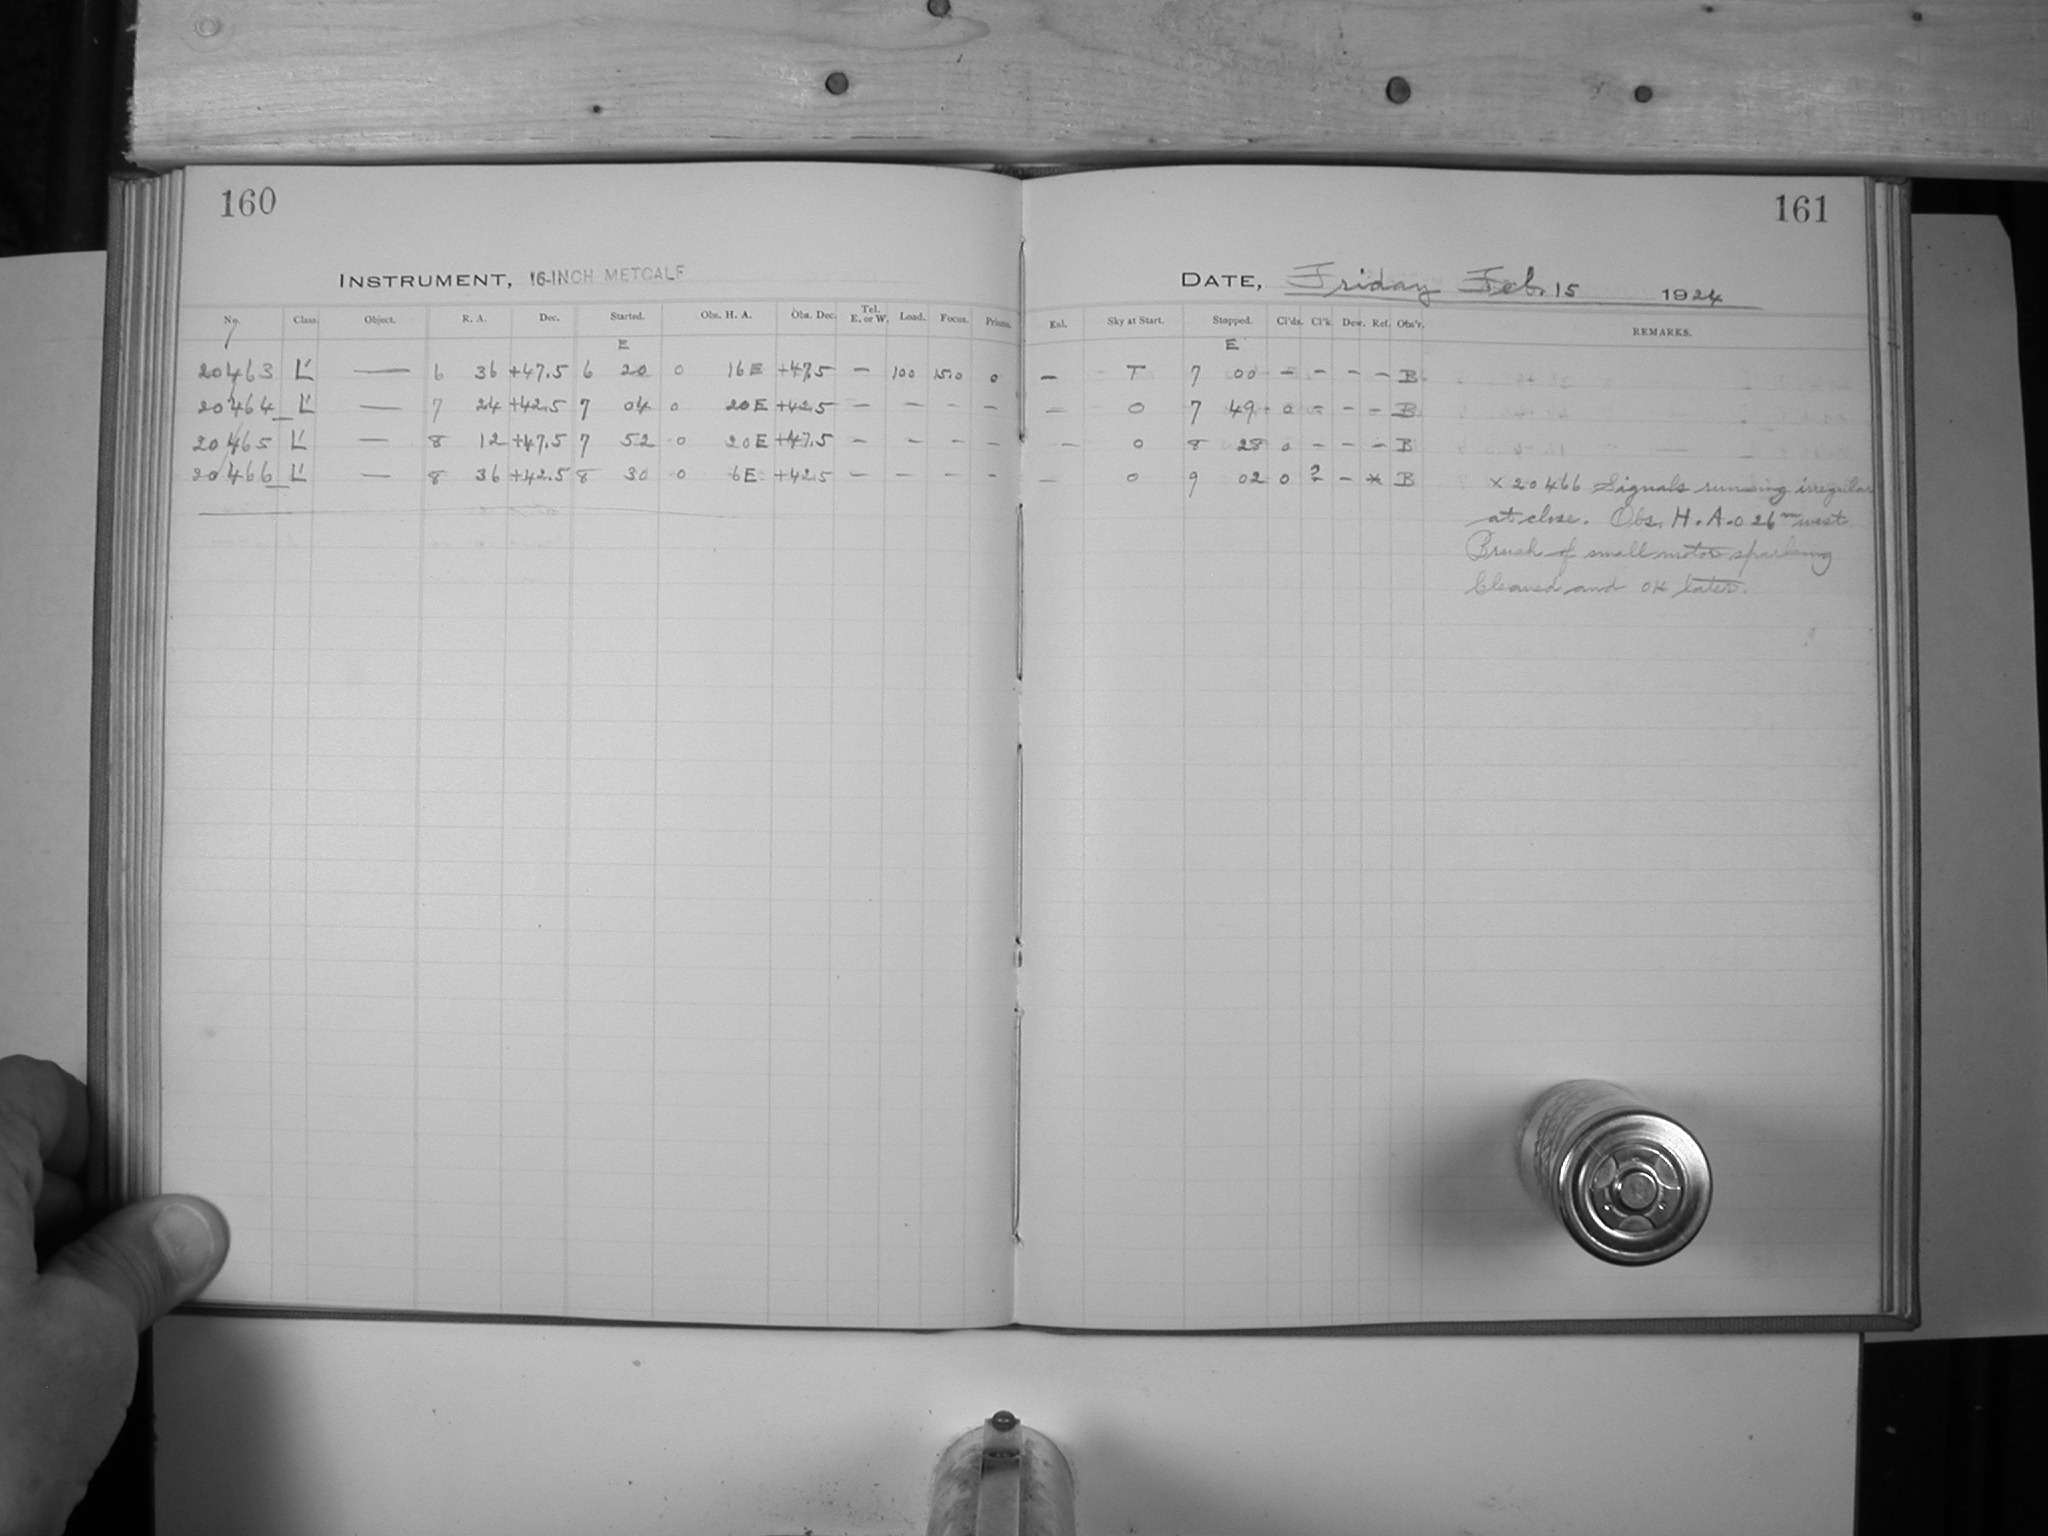 160
INSTRUMENT, 16-INCH METCALF
No. Class. Object. R. A. Dec. Started. Obs. H. A. Obs. Dec. Tel. E. or W. Load. Focus. Prisms.
E
20463 L' — 6 36 +47.5 6 20 0 16E +47.5 – 100 15.0 0
20464 L' — 7 24 +42.5 7 04 0 20E +42.5 – – – –
20465 L' — 8 12 +47.5 7 52 0 20E +47.5 – – – –
20466 L' — 8 36 +42.5 8 30 0 6E +42.5 – – – –
161
DATE, Friday Feb. 15 1924
Enl. Sky at Start. Stopped. Cl'ds. Cl'k. Dew. Ref. Obs'r. REMARKS.
E
– T 7 00 – – – – B
– 0 7 49 0 – – – B
– 0 8 28 0 – – – B
– 0 9 02 0 ? – × B × 20466 Signals running irregular
at close. Obs. H. A. 0 26m west
Brush of small motor sparking
Cleaned and OK later.